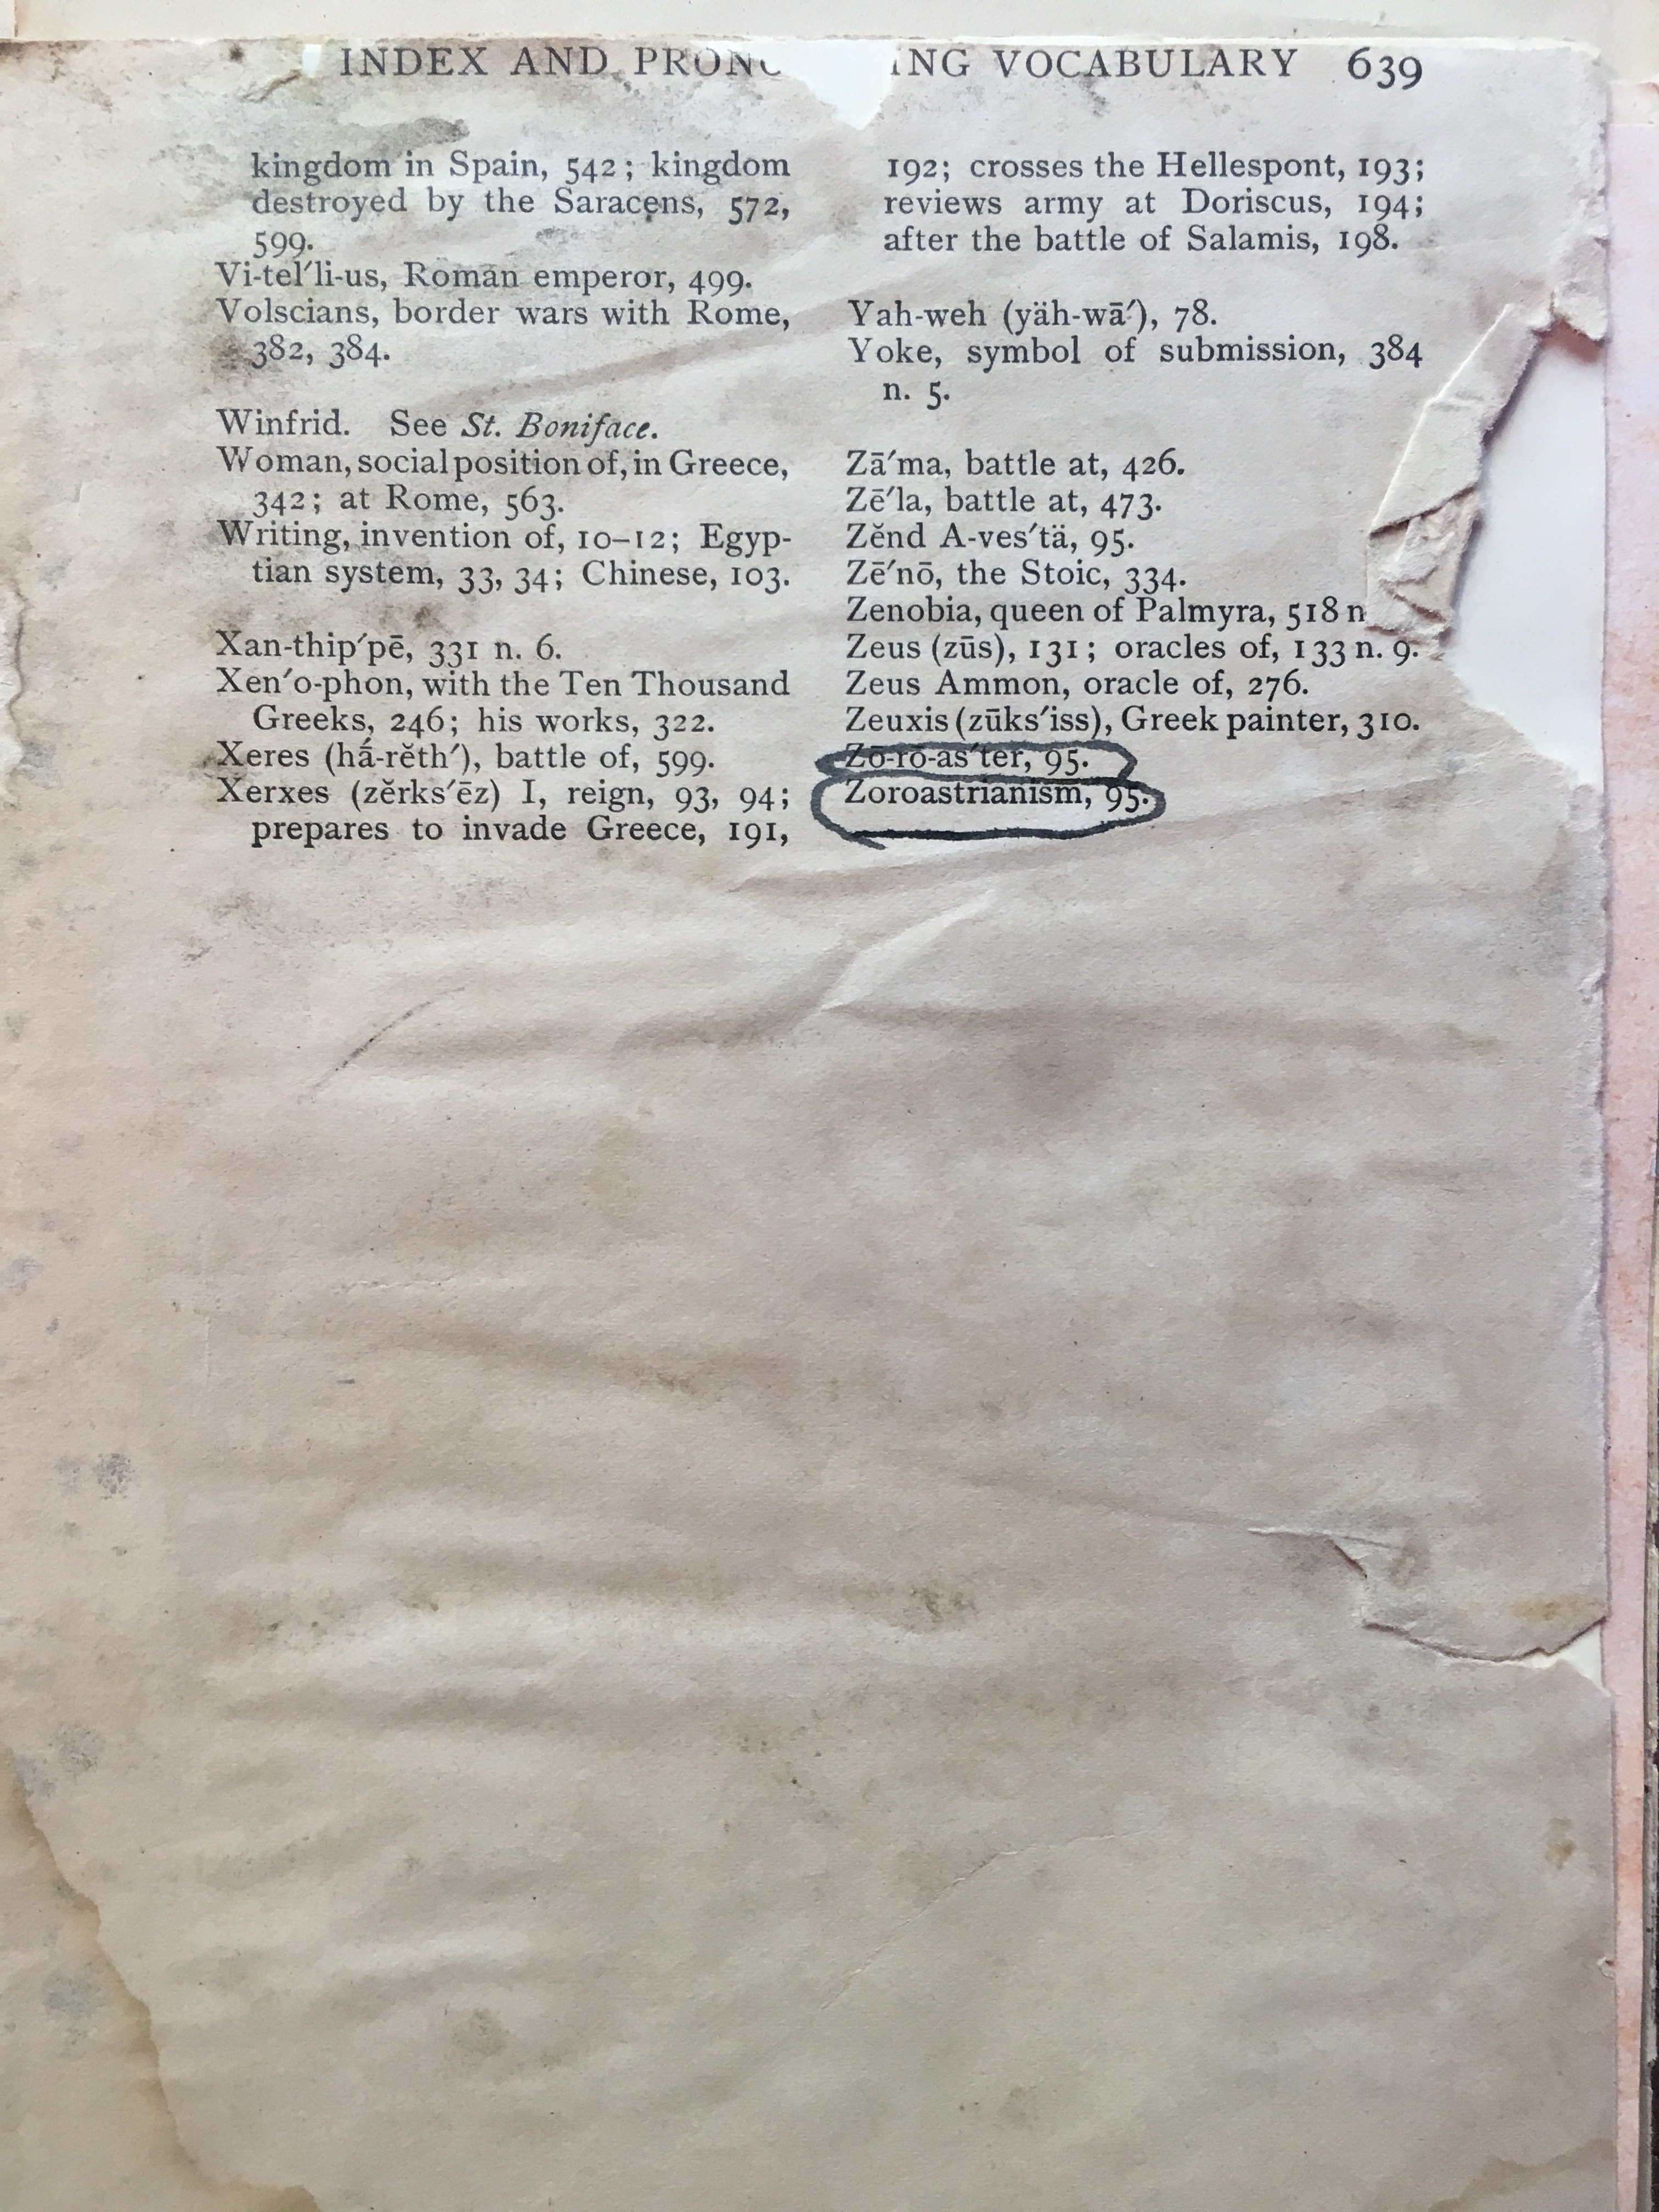 INDEX AND PRON ING VOCABULARY 639
kingdom in Spain, 542; kingdom
destroyed by the Saracens, 572,
599.
Vi-tel′li-us, Roman emperor, 499.
Volscians, border wars with Rome,
382, 384.
Winfrid. See St. Boniface.
Woman, social position of, in Greece,
342; at Rome, 563.
Writing, invention of, 10–12; Egyp-
tian system, 33, 34; Chinese, 103.
Xan-thip′pē, 331 n. 6.
Xen′o-phon, with the Ten Thousand
Greeks, 246; his works, 322.
Xeres (hā́-rĕth′), battle of, 599.
Xerxes (zĕrks′ēz) I, reign, 93, 94;
prepares to invade Greece, 191,
192; crosses the Hellespont, 193;
reviews army at Doriscus, 194;
after the battle of Salamis, 198.
Yah-weh (yäh-wā′), 78.
Yoke, symbol of submission, 384
n. 5.
Zā′ma, battle at, 426.
Zē′la, battle at, 473.
Zĕnd A-ves′tä, 95.
Zē′nō, the Stoic, 334.
Zenobia, queen of Palmyra, 518 n
Zeus (zūs), 131; oracles of, 133 n. 9.
Zeus Ammon, oracle of, 276.
Zeuxis (zūks′iss), Greek painter, 310.
Zō-rō-as′ter, 95.
Zoroastrianism, 95.